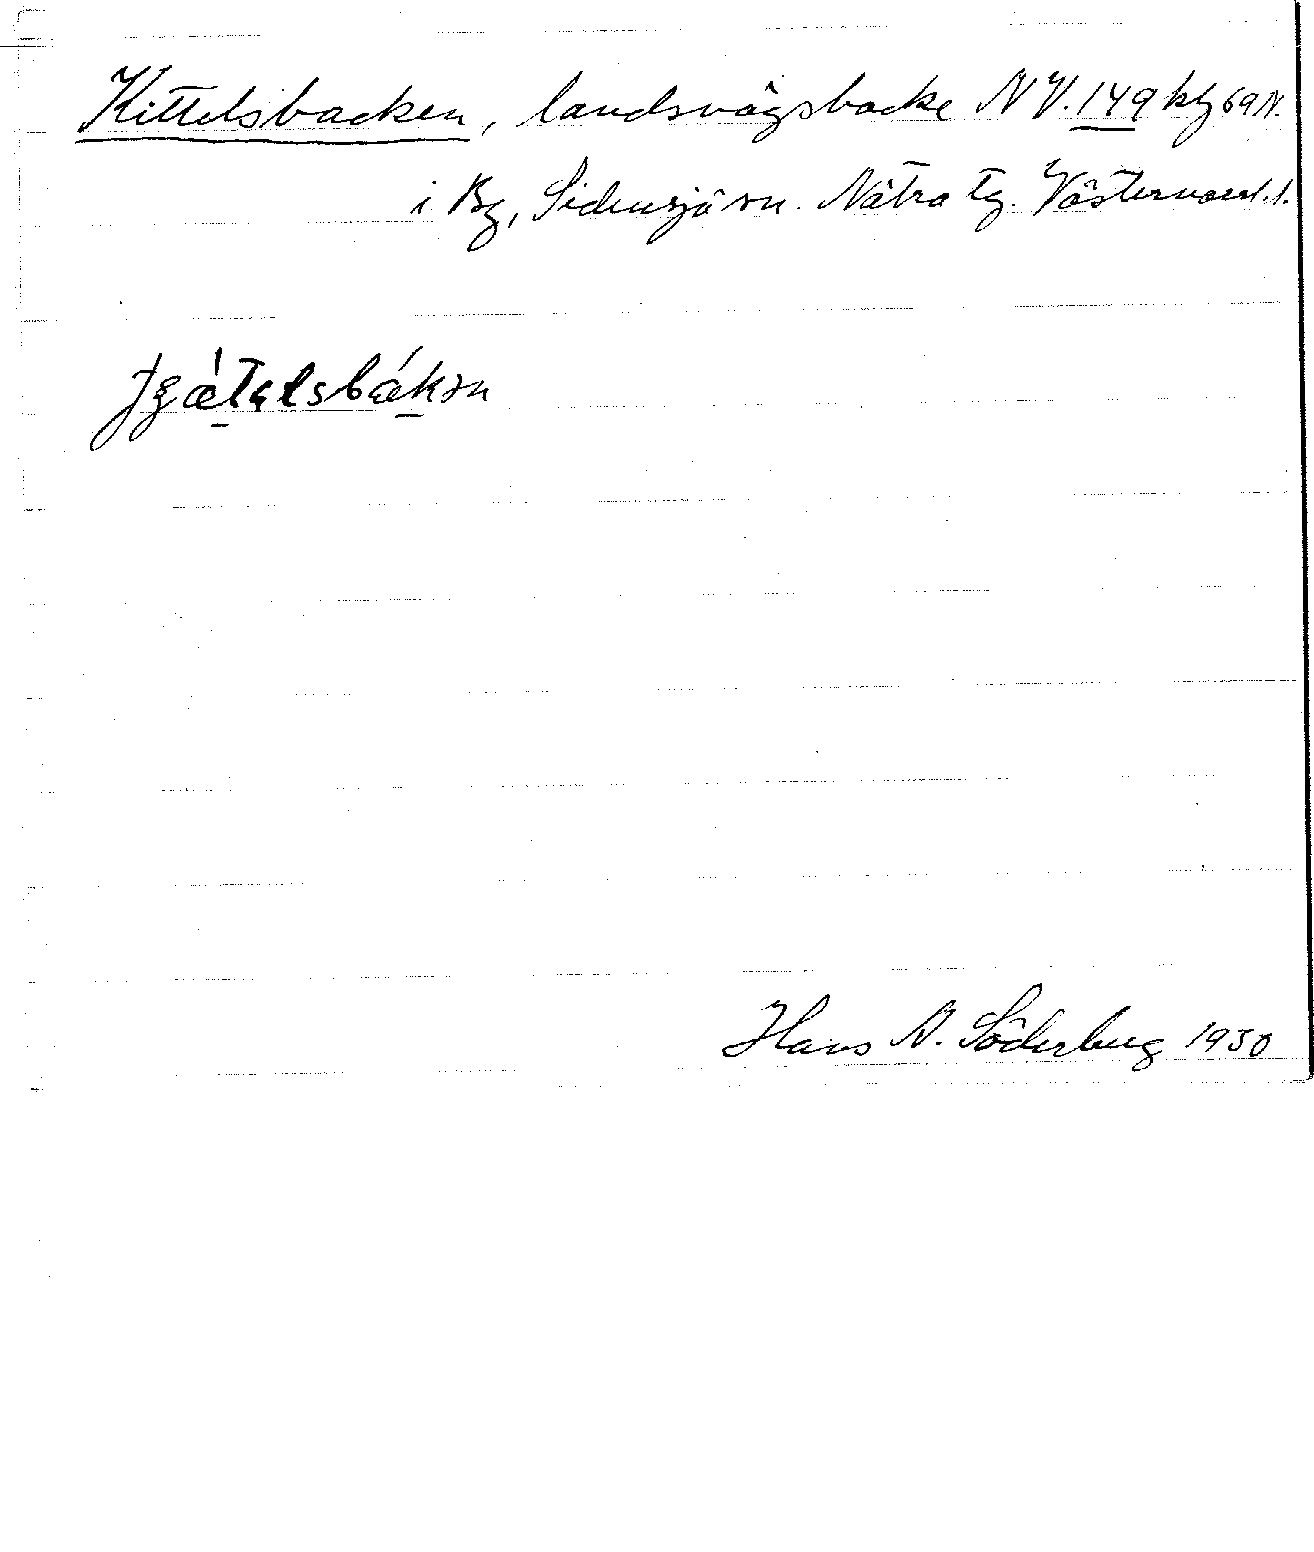 Kittelsbacken, landsvägsbacke NV. 149 klg 69 N.
i By, Sidensjö sn. Nätra tg. Västernorrl. l.
Hans N. Söderberg 1930